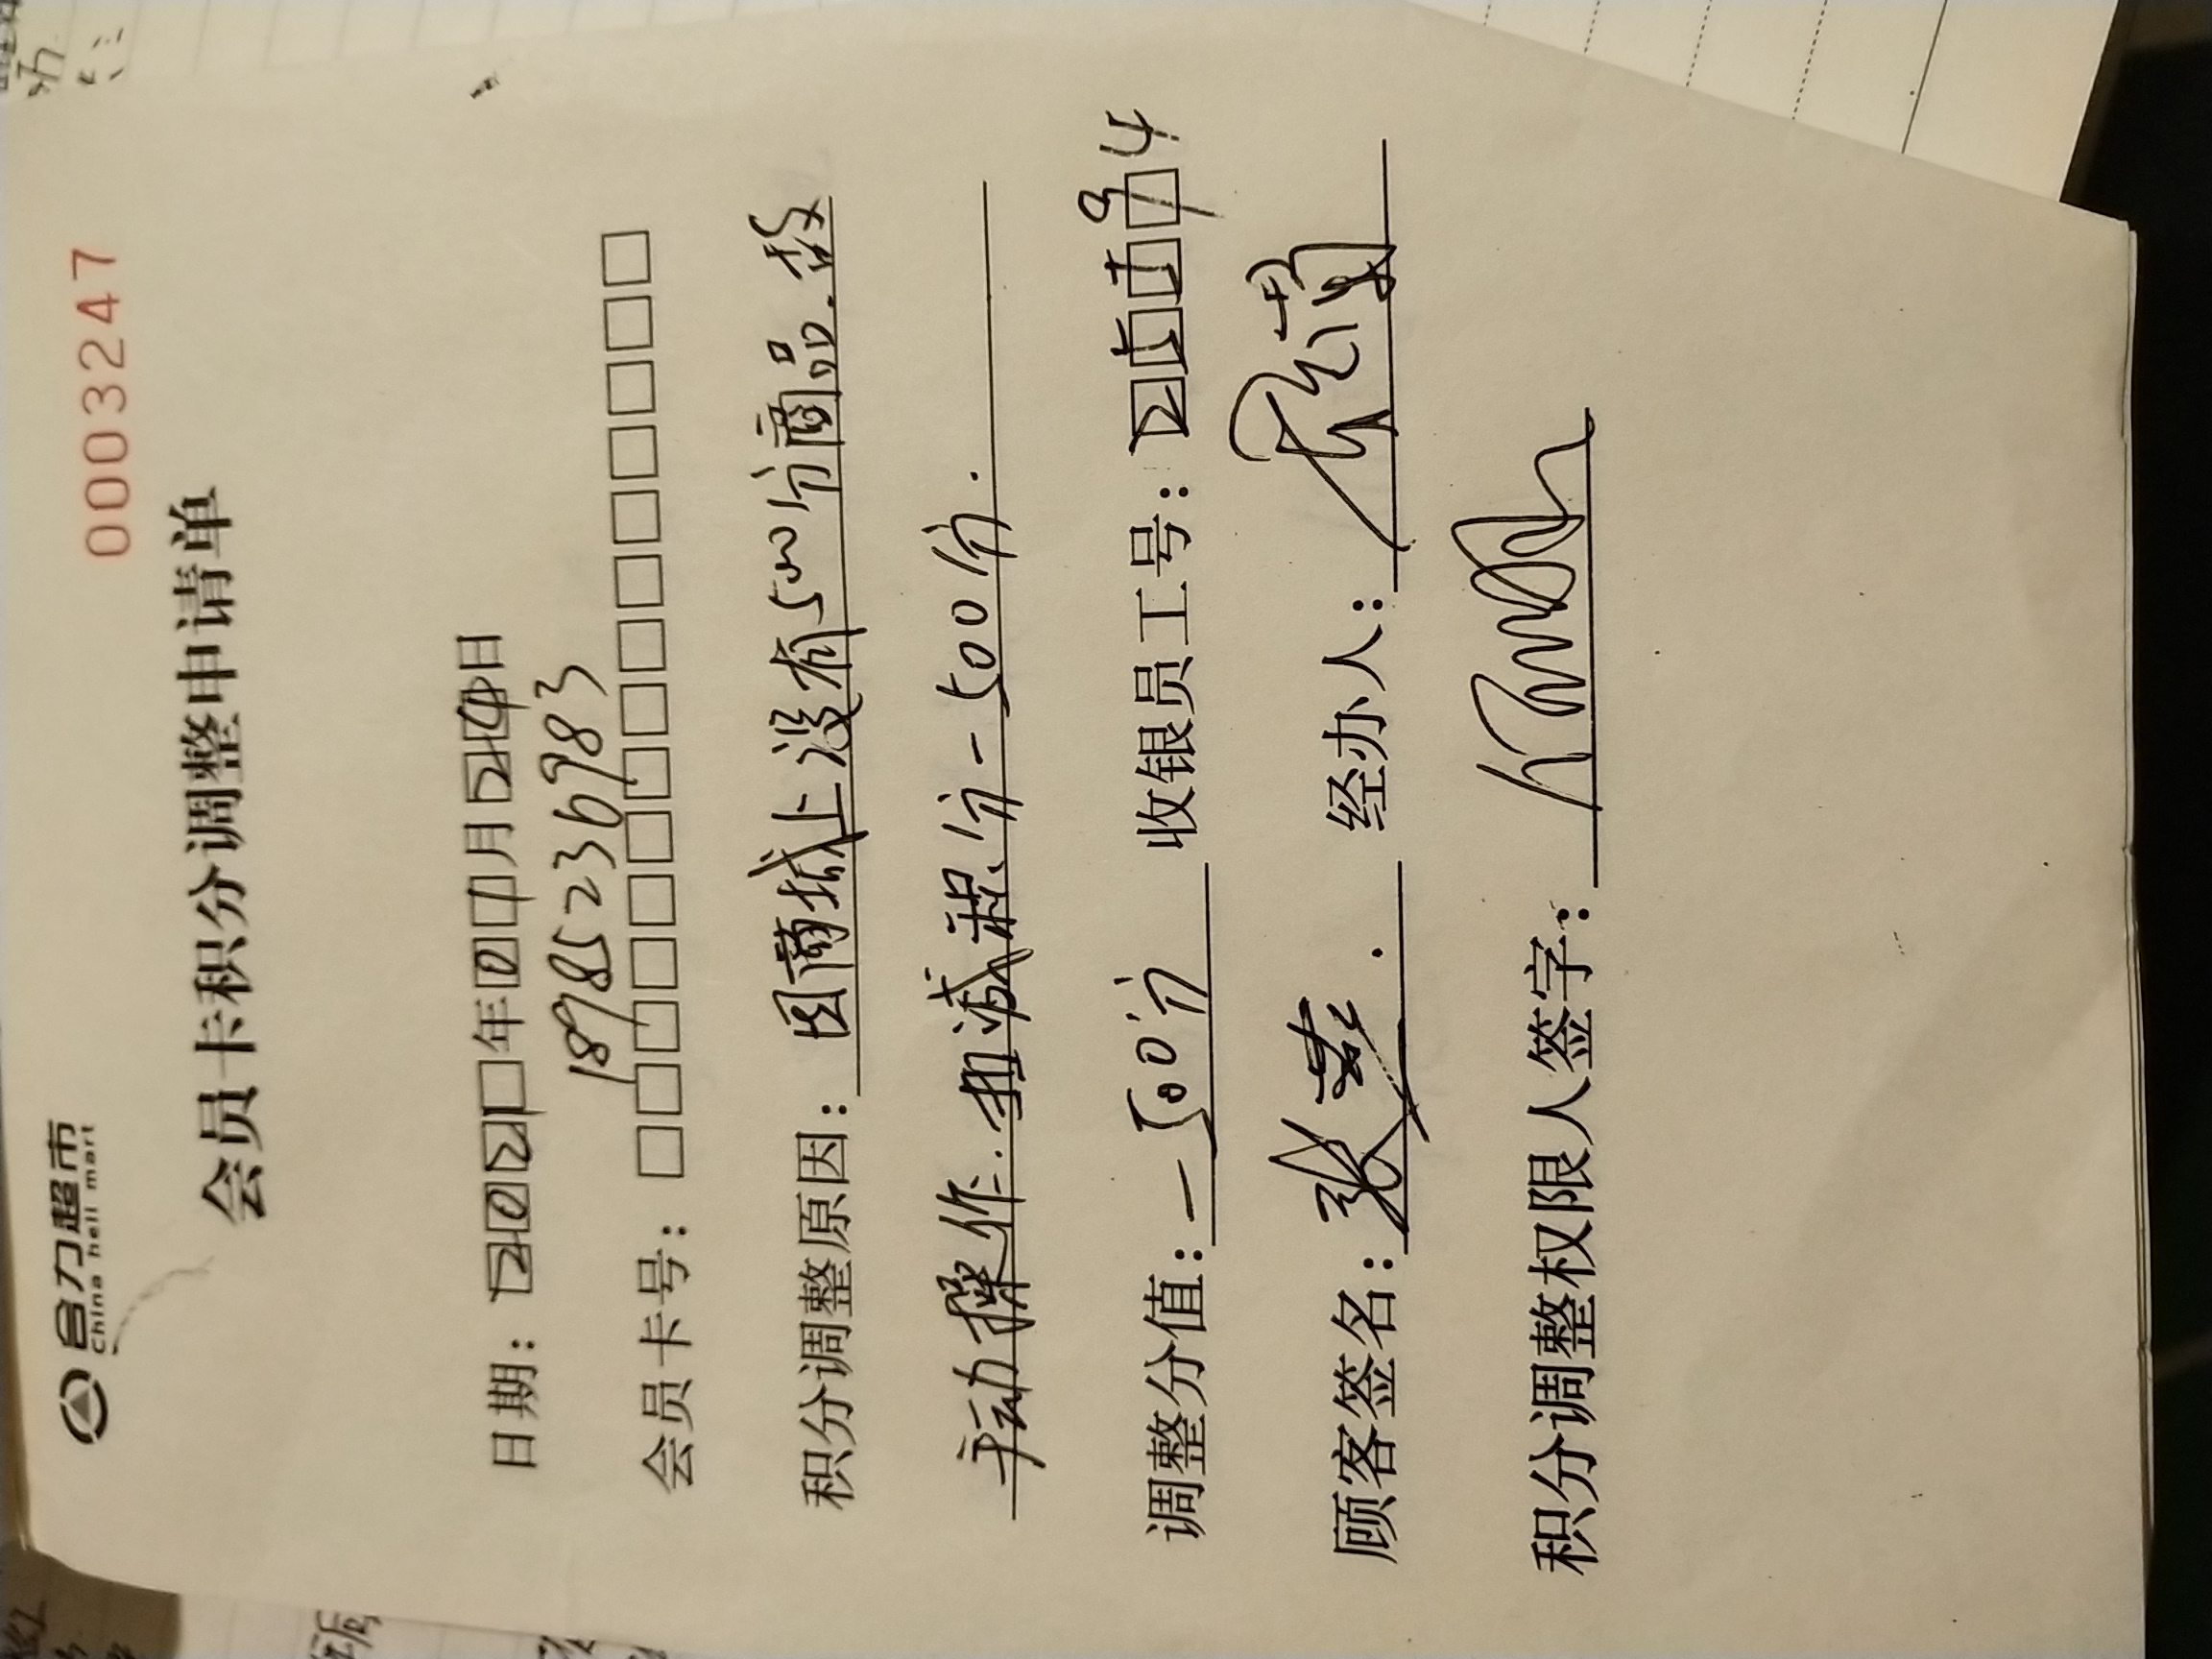 合力超市
China heli mart
0003247
会员卡积分调整申请单
日期：2021年01月24日
18985236983
会员卡号：
积分调整原因：因商城上没有500分商品.故
手动操作.扣减积分-500分.
调整分值：-500分 收银员工号：
顾客签名：张 经办人：
积分调整权限人签字：